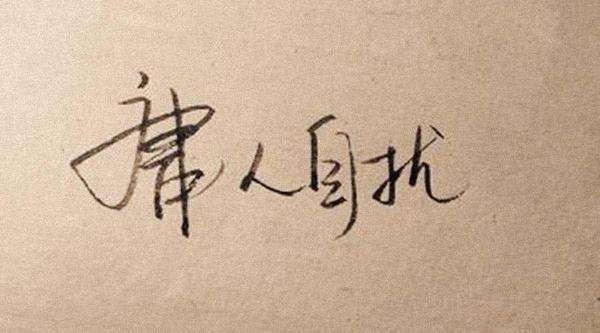 庸人自扰